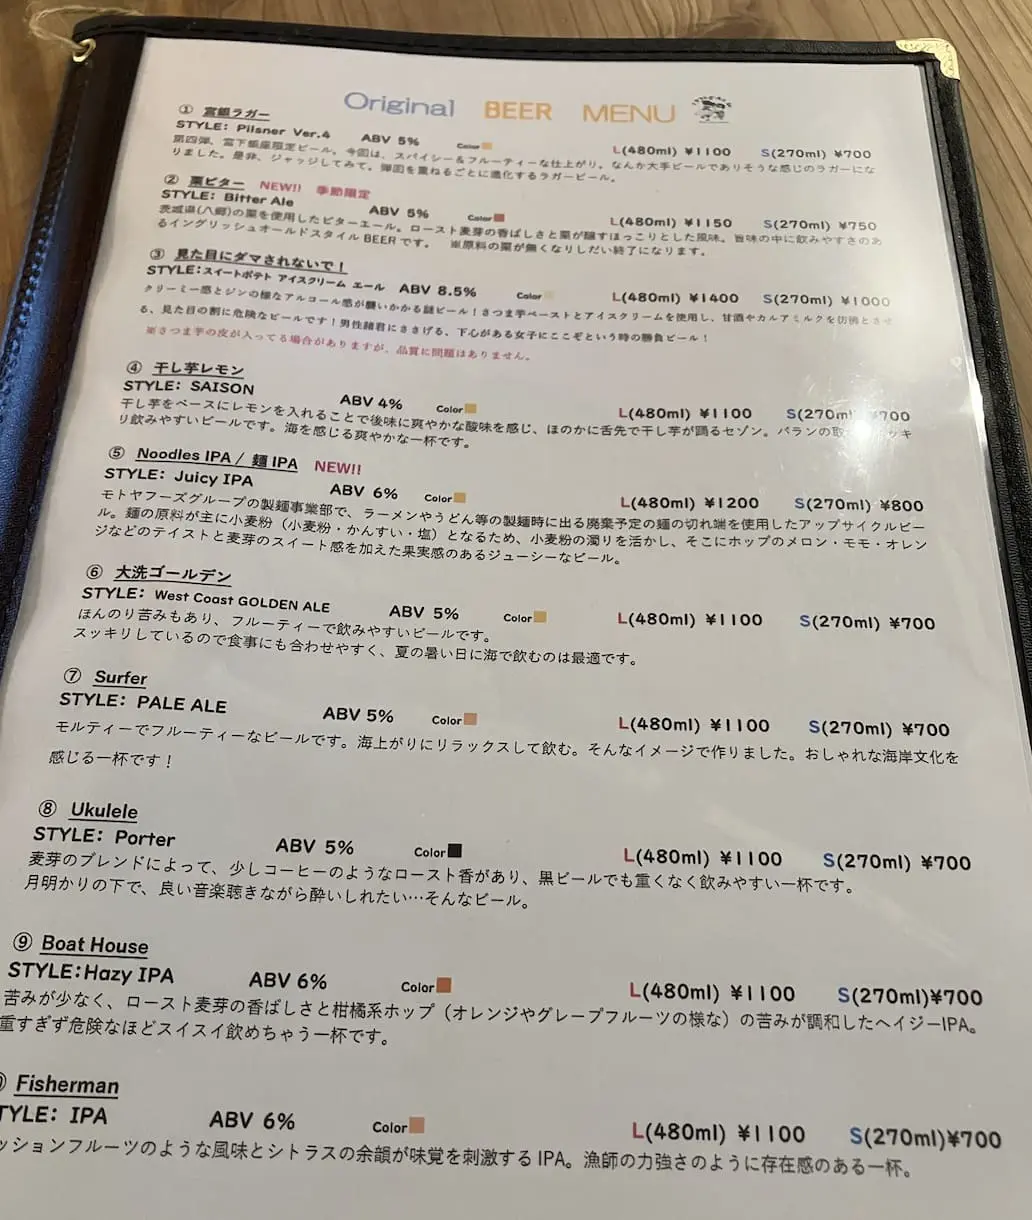 Original BEER MENU
①宮銀ラガー
STYLE: Pilsner Ver.4 ABV 5% Color L(480ml) ¥1100 S(270ml) ¥700
第四弾、宮下銀座限定ビール。今回は、スパイシー＆フルーティーな仕上がり。なんか大手ビールでありそうな感じのラガーにな
りました。是非、ジャッジしてみて。弾回を重ねるごとに進化するラガービール。
② 栗ビター NEW!! 季節限定
STYLE: Bitter Ale ABV 5% Color L(480ml) ¥1150 S(270ml) ¥750
茨城県(八郷)の栗を使用したビターエール。ロースト麦芽の香ばしさと栗が醸すほっこりとした風味。旨味の中に飲みやすさのあ
るイングリッシュオールドスタイルBEERです。 ※原料の栗が無くなりしだい終了になります。
③ 見た目にダマされないで！
STYLE:スイートポテト アイスクリーム エール ABV 8.5% Color L(480ml) ¥1400 S(270ml) ¥1000
クリーミー感とジンの様なアルコール感が襲いかかる謎ビール！さつま芋ペーストとアイスクリームを使用し、甘酒やカルアミルクを彷彿とさせ
る、見た目の割に危険なビールです！男性諸君にささげる、下心がある女子にここぞという時の勝負ビール！
※さつま芋の皮が入ってる場合がありますが、品質に問題はありません。
④ 干し芋レモン
STYLE: SAISON ABV 4% Color L(480ml) ¥1100 S(270ml) ¥700
干し芋をベースにレモンを入れることで後味に爽やかな酸味を感じ、ほのかに舌先で干し芋が踊るセゾン。バランの取 ッキ
リ飲みやすいビールです。海を感じる爽やかな一杯です。
⑤ Noodles IPA / 麺IPA NEW!!
STYLE: Juicy IPA ABV 6% Color L(480ml) ¥1200 S(270ml) ¥800
モトヤフーズグループの製麺事業部で、ラーメンやうどん等の製麺時に出る廃棄予定の麺の切れ端を使用したアップサイクルビー
ル。麺の原料が主に小麦粉（小麦粉・かんすい・塩）となるため、小麦粉の濁りを活かし、そこにホップのメロン・モモ・オレン
ジなどのテイストと麦芽のスイート感を加えた果実感のあるジューシーなビール。
⑥ 大洗ゴールデン
STYLE: West Coast GOLDEN ALE ABV 5% Color L(480ml) ¥1100 S(270ml) ¥700
ほんのり苦みもあり、フルーティーで飲みやすいビールです。
スッキリしているので食事にも合わせやすく、夏の暑い日に海で飲むのは最適です。
⑦ Surfer
STYLE: PALE ALE ABV 5% Color L(480ml) ¥1100 S(270ml) ¥700
モルティーでフルーティーなビールです。海上がりにリラックスして飲む。そんなイメージで作りました。おしゃれな海岸文化を
感じる一杯です！
⑧ Ukulele
STYLE: Porter ABV 5% Color L(480ml) ¥1100 S(270ml) ¥700
麦芽のブレンドによって、少しコーヒーのようなロースト香があり、黒ビールでも重くなく飲みやすい一杯です。
月明かりの下で、良い音楽聴きながら酔いしれたい…そんなビール。
⑨ Boat House
STYLE:Hazy IPA ABV 6% Color L(480ml) ¥1100 S(270ml)¥700
苦みが少なく、ロースト麦芽の香ばしさと柑橘系ホップ（オレンジやグレープフルーツの様な）の苦みが調和したヘイジーIPA。
重すぎず危険なほどスイスイ飲めちゃう一杯です。
Fisherman
TYLE: IPA ABV 6% Color L(480ml) ¥1100 S(270ml)¥700
ッションフルーツのような風味とシトラスの余韻が味覚を刺激するIPA。漁師の力強さのように存在感のある一杯。